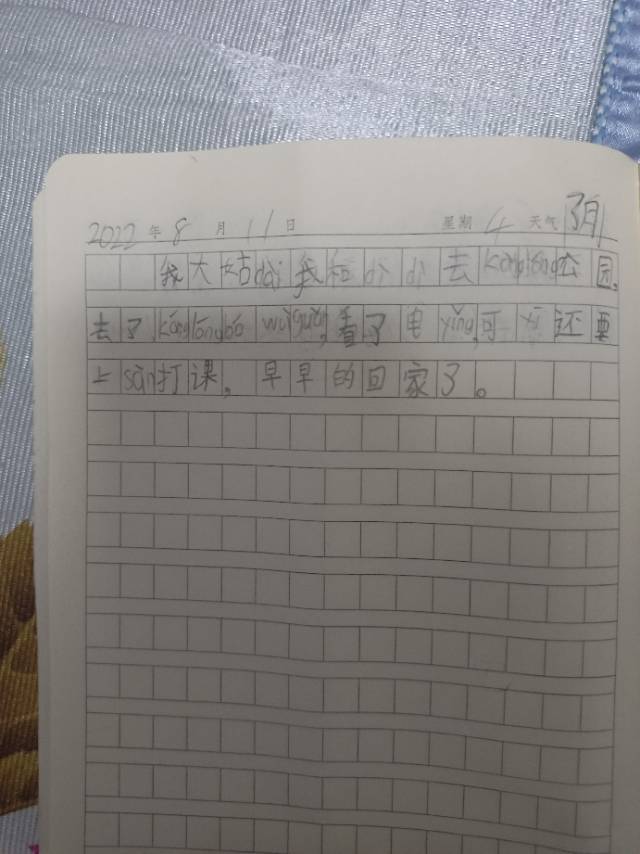 2022年8月11日 星期4 天气阴
我大姑dài我和dì dì去kǒnglóng公园,
去了kǒnglóngbó wùguǎn,看了电yǐng,可xī还要
上sǎn打课,早早的回家了。